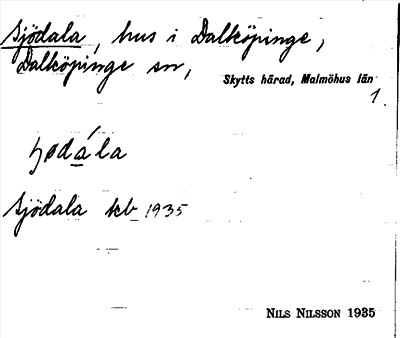 Sjödala, hus i Dalköpinge,
Dalköpinge sn,
Skytts härad, Malmöhus län
1.
Sjödala kb 1935
NILS NILSSON 1935